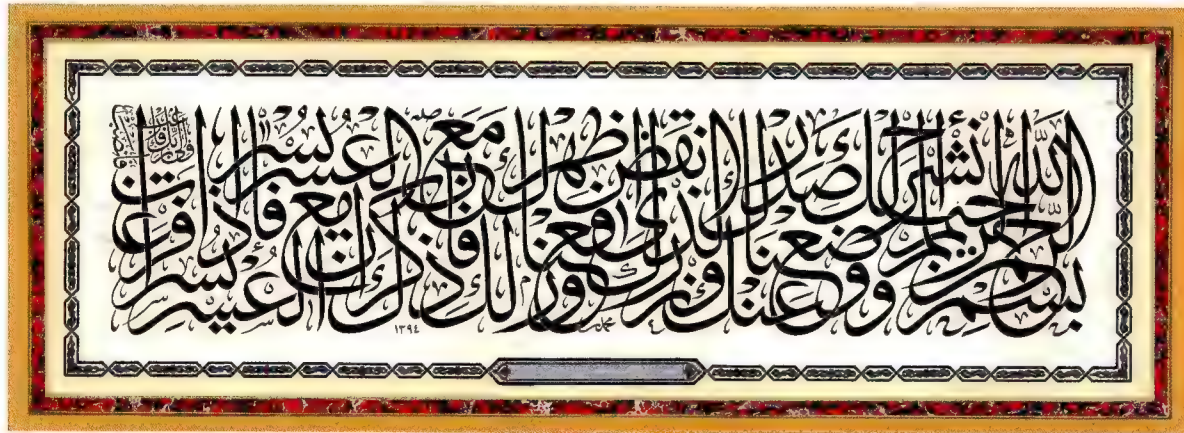 بسم الله الرحمن الرحيم ألم نشرح لك صدرك ووضعنا عنك وزرك الذي أنقض ظهرك ورفعنا لك ذكرك فإن مع العسر يسرا إن مع العسر يسرا فإذا فرغت
١٣٩٤